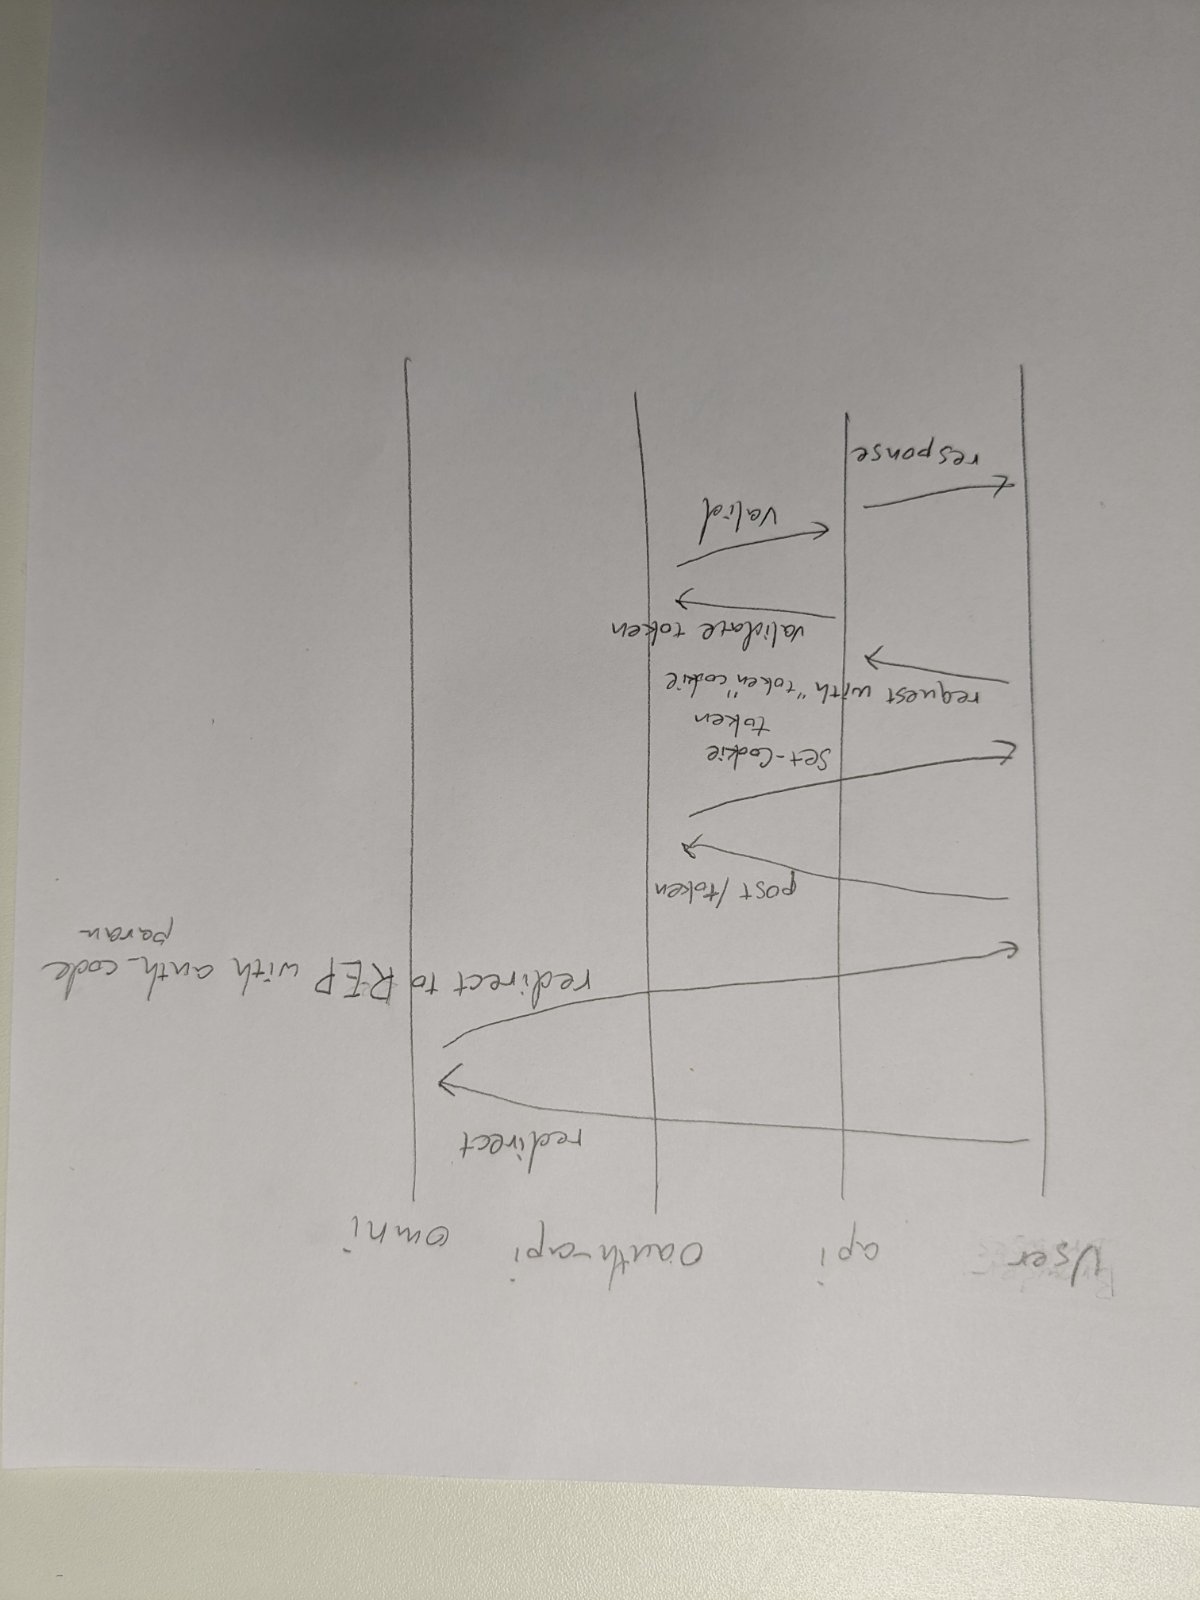 User api oauth-api omni
redirect
redirect to REP with auth_code
param
post /token
Set-Cookie
token
request with "token" cookie
validate token
valid
response